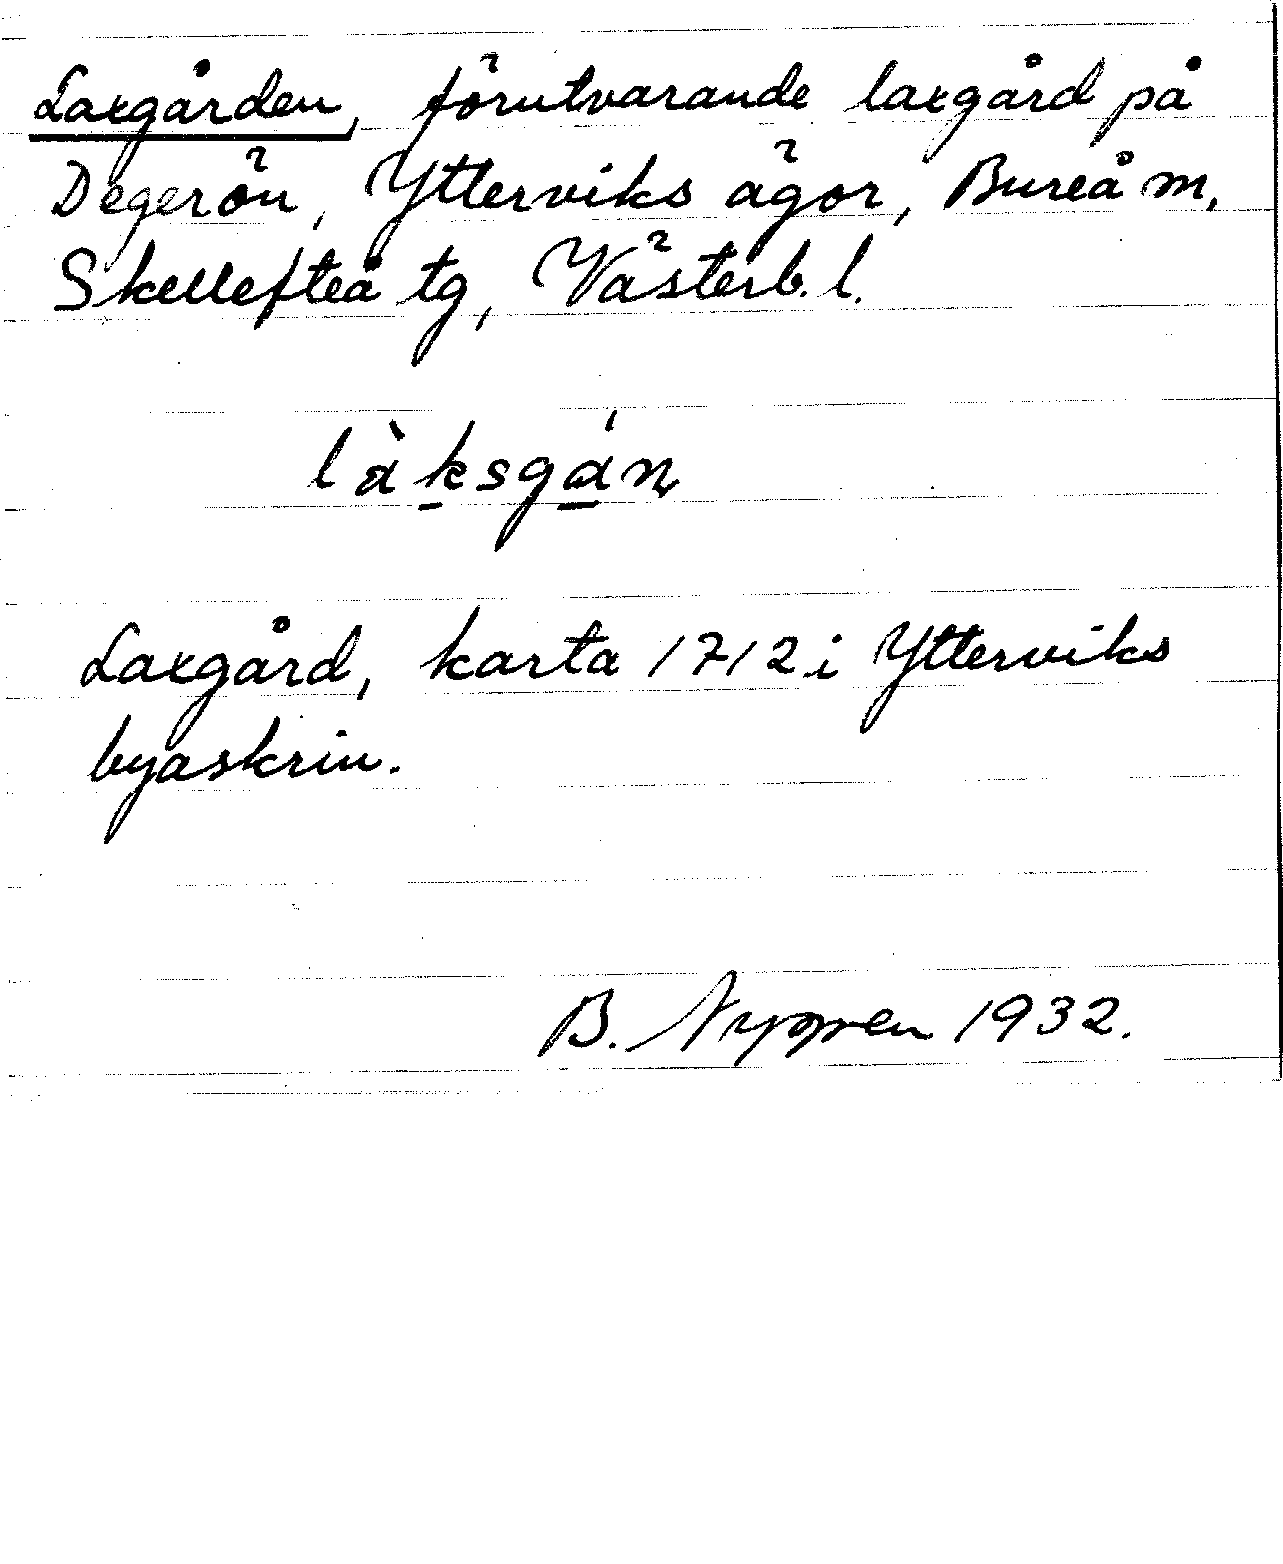 Laxgården, förutvarande laxgård på
Degerön, Ytterviks ägor, Bureå m,
Skellefteå tg, Västerb. l.
làksgán
Laxgård, karta 1712 i Ytterviks
byaskrin.
B. Nygren 1932.